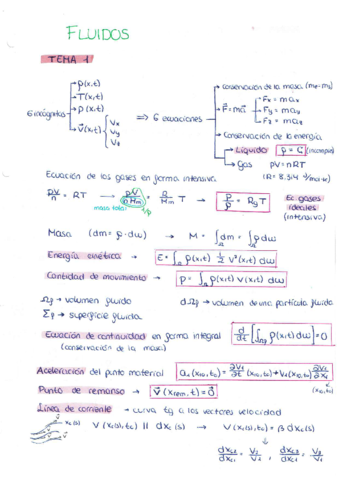 FLUIDOS
TEMA 1
6 incógnitas
ρ(x,t)
T(x,t)
p(x,t)
v⃗(x,t) { Vx Vy Vz
=> 6 ecuaciones
conservación de la masa
F⃗ = m a⃗ { Fx = m ax Fy = m ay Fz = m az
Conservación de la energía
Líquido ρ = C (incompresible)
Gas pV = nRT
(R = 8.314 J/mol·K)
Ecuación de los gases en forma intensiva
pV/n = RT → masa total → p/ρ = Rg T
Ec gases ideales (intensiva)
Masa (dm = ρ·dω) → M = ∫dm = ∫ρdω
Energía cinética → E = ∫Ω ρ(x,t) 1/2 v²(x,t) dω
Cantidad de movimiento → p = ∫Ω ρ(x,t) v(x,t) dω
Ωf → volumen fluido dΩf → volumen de una partícula fluida
Σf → superficie fluida
Ecuación de continuidad en forma integral d/dt [∫Ωf ρ(x,t) dω] = 0
(conservación de la masa)
Aceleración del punto material
Punto de remanso → v⃗(xrem, t) = 0⃗
Línea de corriente → curva tg a los vectores velocidad
V(xc(s),tc) || dxc(s) → V(xc(s),tc) = β dxc(s)
dxc2/dxc1 = V2/V1 , dxc3/dxc1 = V3/V1